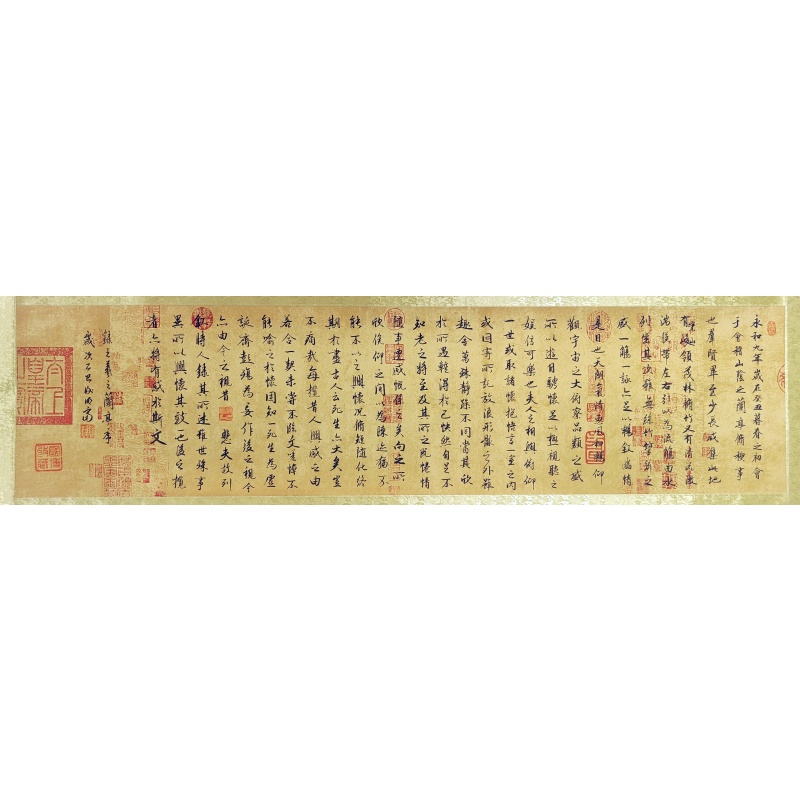 永和九年歲在癸丑暮春之初會
于會稽山陰之蘭亭脩稧事
也羣賢畢至少長咸集此地
有崇山峻領茂林脩竹又有清流激
湍暎帶左右引以為流觴曲水
列坐其次雖無絲竹管弦之
盛一觴一詠亦足以暢敘幽情
是日也天朗氣清惠風和暢仰
觀宇宙之大俯察品類之盛
所以遊目騁懷足以極視聽之
娛信可樂也夫人之相與俯仰
一世或取諸懷抱悟言一室之內
或因寄所託放浪形骸之外雖
趣舍萬殊靜躁不同當其欣
於所遇暫得於己快然自足不
知老之將至及其所之既惓情
隨事遷感慨係之矣向之所
欣俛仰之間以為陳迹猶不
能不以之興懷況脩短隨化終
期於盡古人云死生亦大矣豈
不痛哉每攬昔人興感之由
若合一契未嘗不臨文嗟悼不
能喻之於懷固知一死生為虛
誕齊彭殤為妄作後之視今
亦由今之視昔 悲夫故列
敘時人錄其所述雖世殊事
異所以興懷其致一也後之攬
者亦將有感於斯文
錄王羲之蘭亭序
歲次乙巳